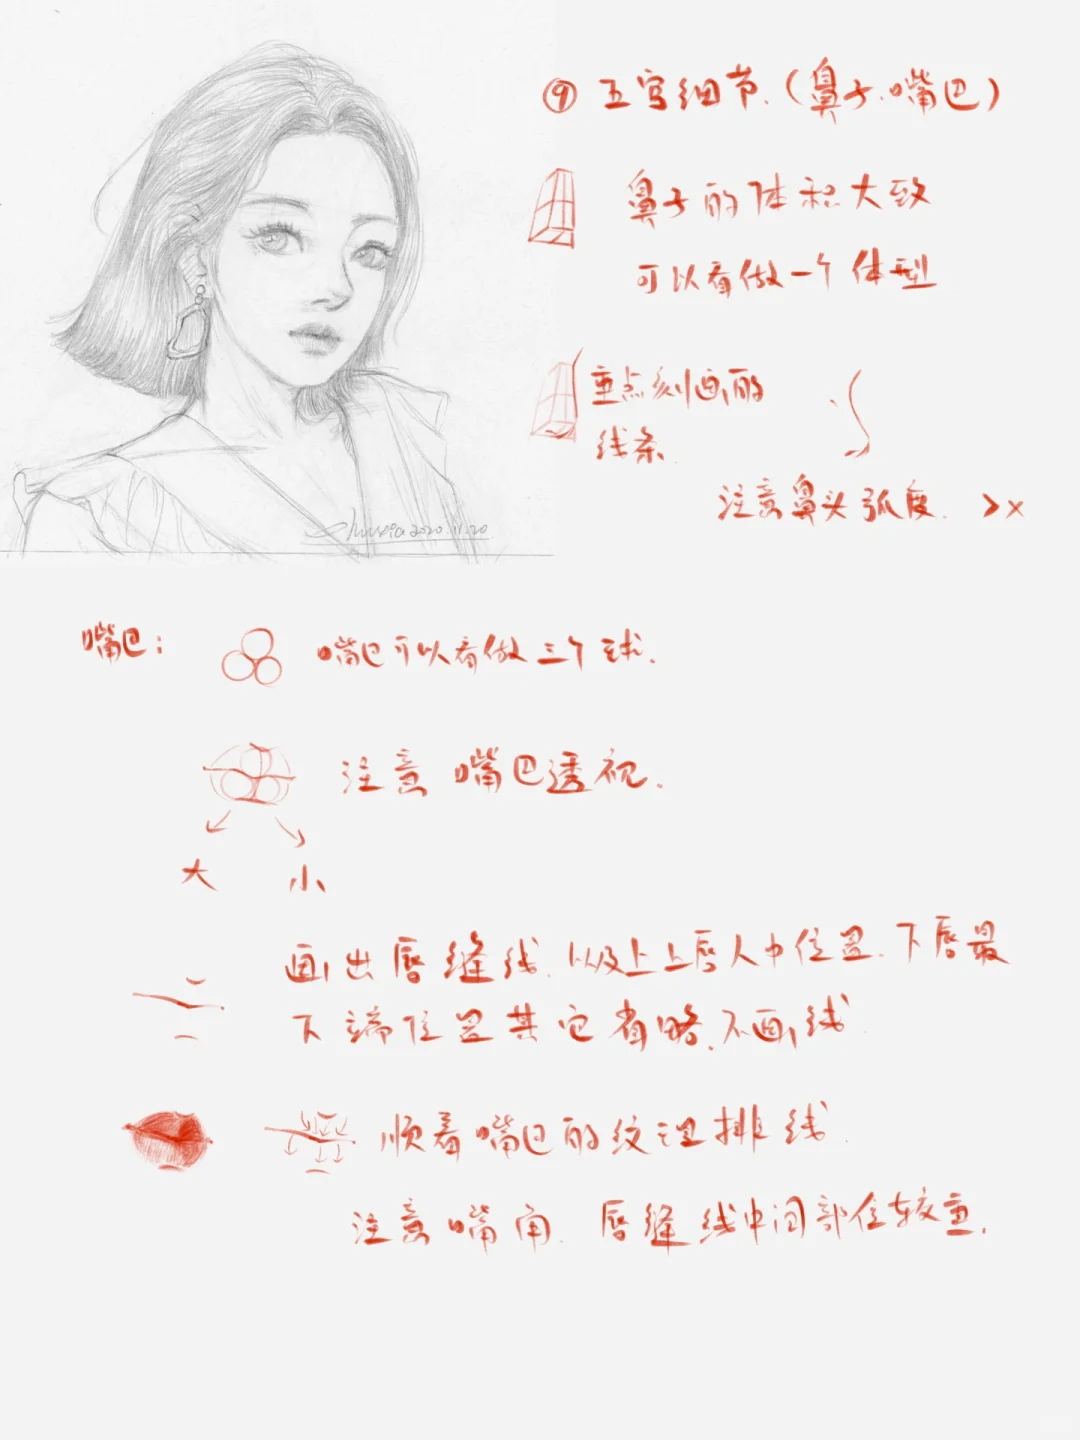 ⑨ 五官细节.(鼻子.嘴巴)
鼻子的体积大致
可以看做一个体型
重点刻画的
线条.
注意鼻头弧度. >×
嘴巴:
嘴巴可以看做三个球.
注意嘴巴透视.
大 小
画出唇缝线.以及上上唇人中位置.下唇最
下端位置其它省略.不画线.
顺着嘴巴的纹理排线.
注意嘴角.唇缝线中间部位较重.
2020.11.20